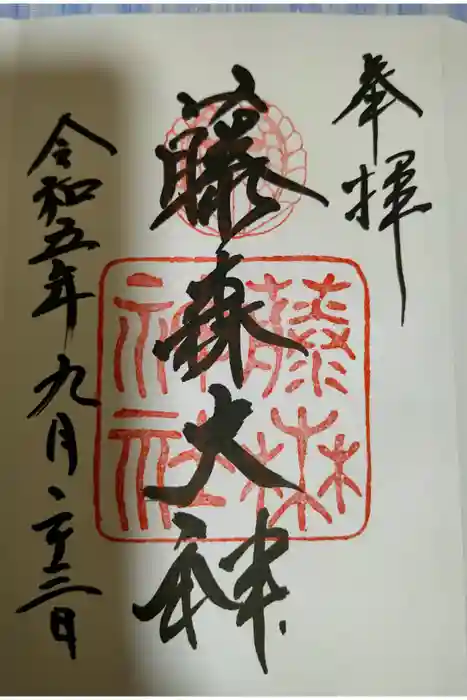 奉拝
藤森大神
藤森神社
令和五年九月二十三日